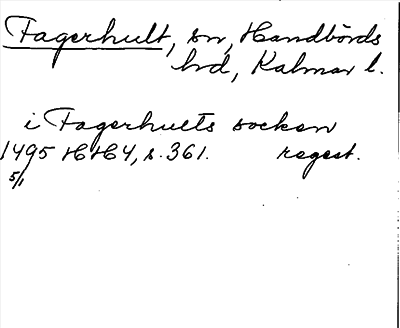 Fagerhult, sn, Handbörds
hrd, Kalmar l.
i Fagerhults socken
1495 HH4, s. 361. regest.
5/1